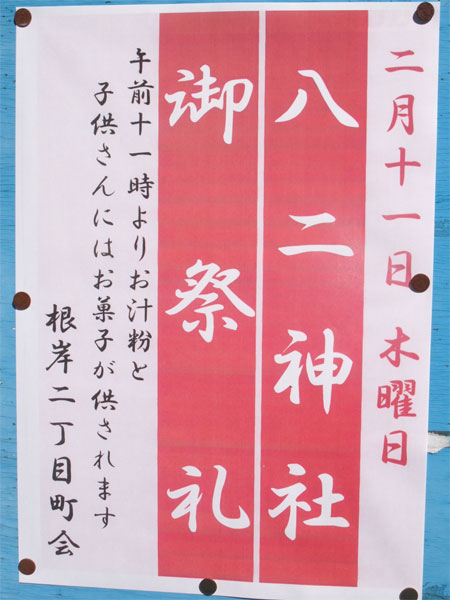 二月十一日 木曜日
八二神社
御祭礼
午前十一時よりお汁粉と
子供さんにはお菓子が供されます
根岸二丁目町会